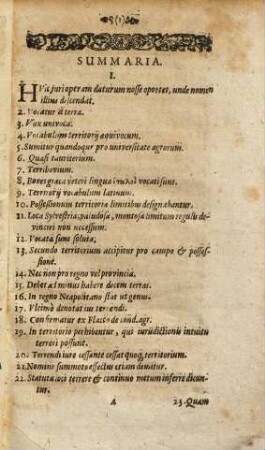 SUMMARIA.
I.
HVic juri operam daturum nosse oportet, unde nomen
illius descendat.
2. Vocatur à terra.
3. Vox univoca.
4. Vocabulum territorij æquivocum.
5. Sumitur quandoque pro universitate agrorum.
6. Quasi tauriterium.
7. Terribovium.
8. Boves græca veteri lingua vocati sunt.
9. Territorij vocabulum latinum.
10. Possessionum territoria limitibus designabantur.
11. Loca Sylvestria, paludosa, montosa limitum regulis de-
vinciri non necessum.
12. Vocata sunt soluta.
13. Secundo territorium accipitur pro campo & posses-
sione.
14. Nec non pro regno vel provincia.
15. Debet ad minus habere decem terras.
16. In regno Neapolitano stat ut genus.
17. Ultimò denotat ius terrendi.
18. Confirmatur ex Flacco de cond. agr.
19. In territorio perhibentur, qui jurisdictionis intuitu
terreri possunt.
20. Terrendi iure cessante cessat quoque territorium.
21. Nomine summoto effectus etiam dematur.
22. Statuta loci terrere & continuo metum inferre dicun-
tur.
A 23. Quam